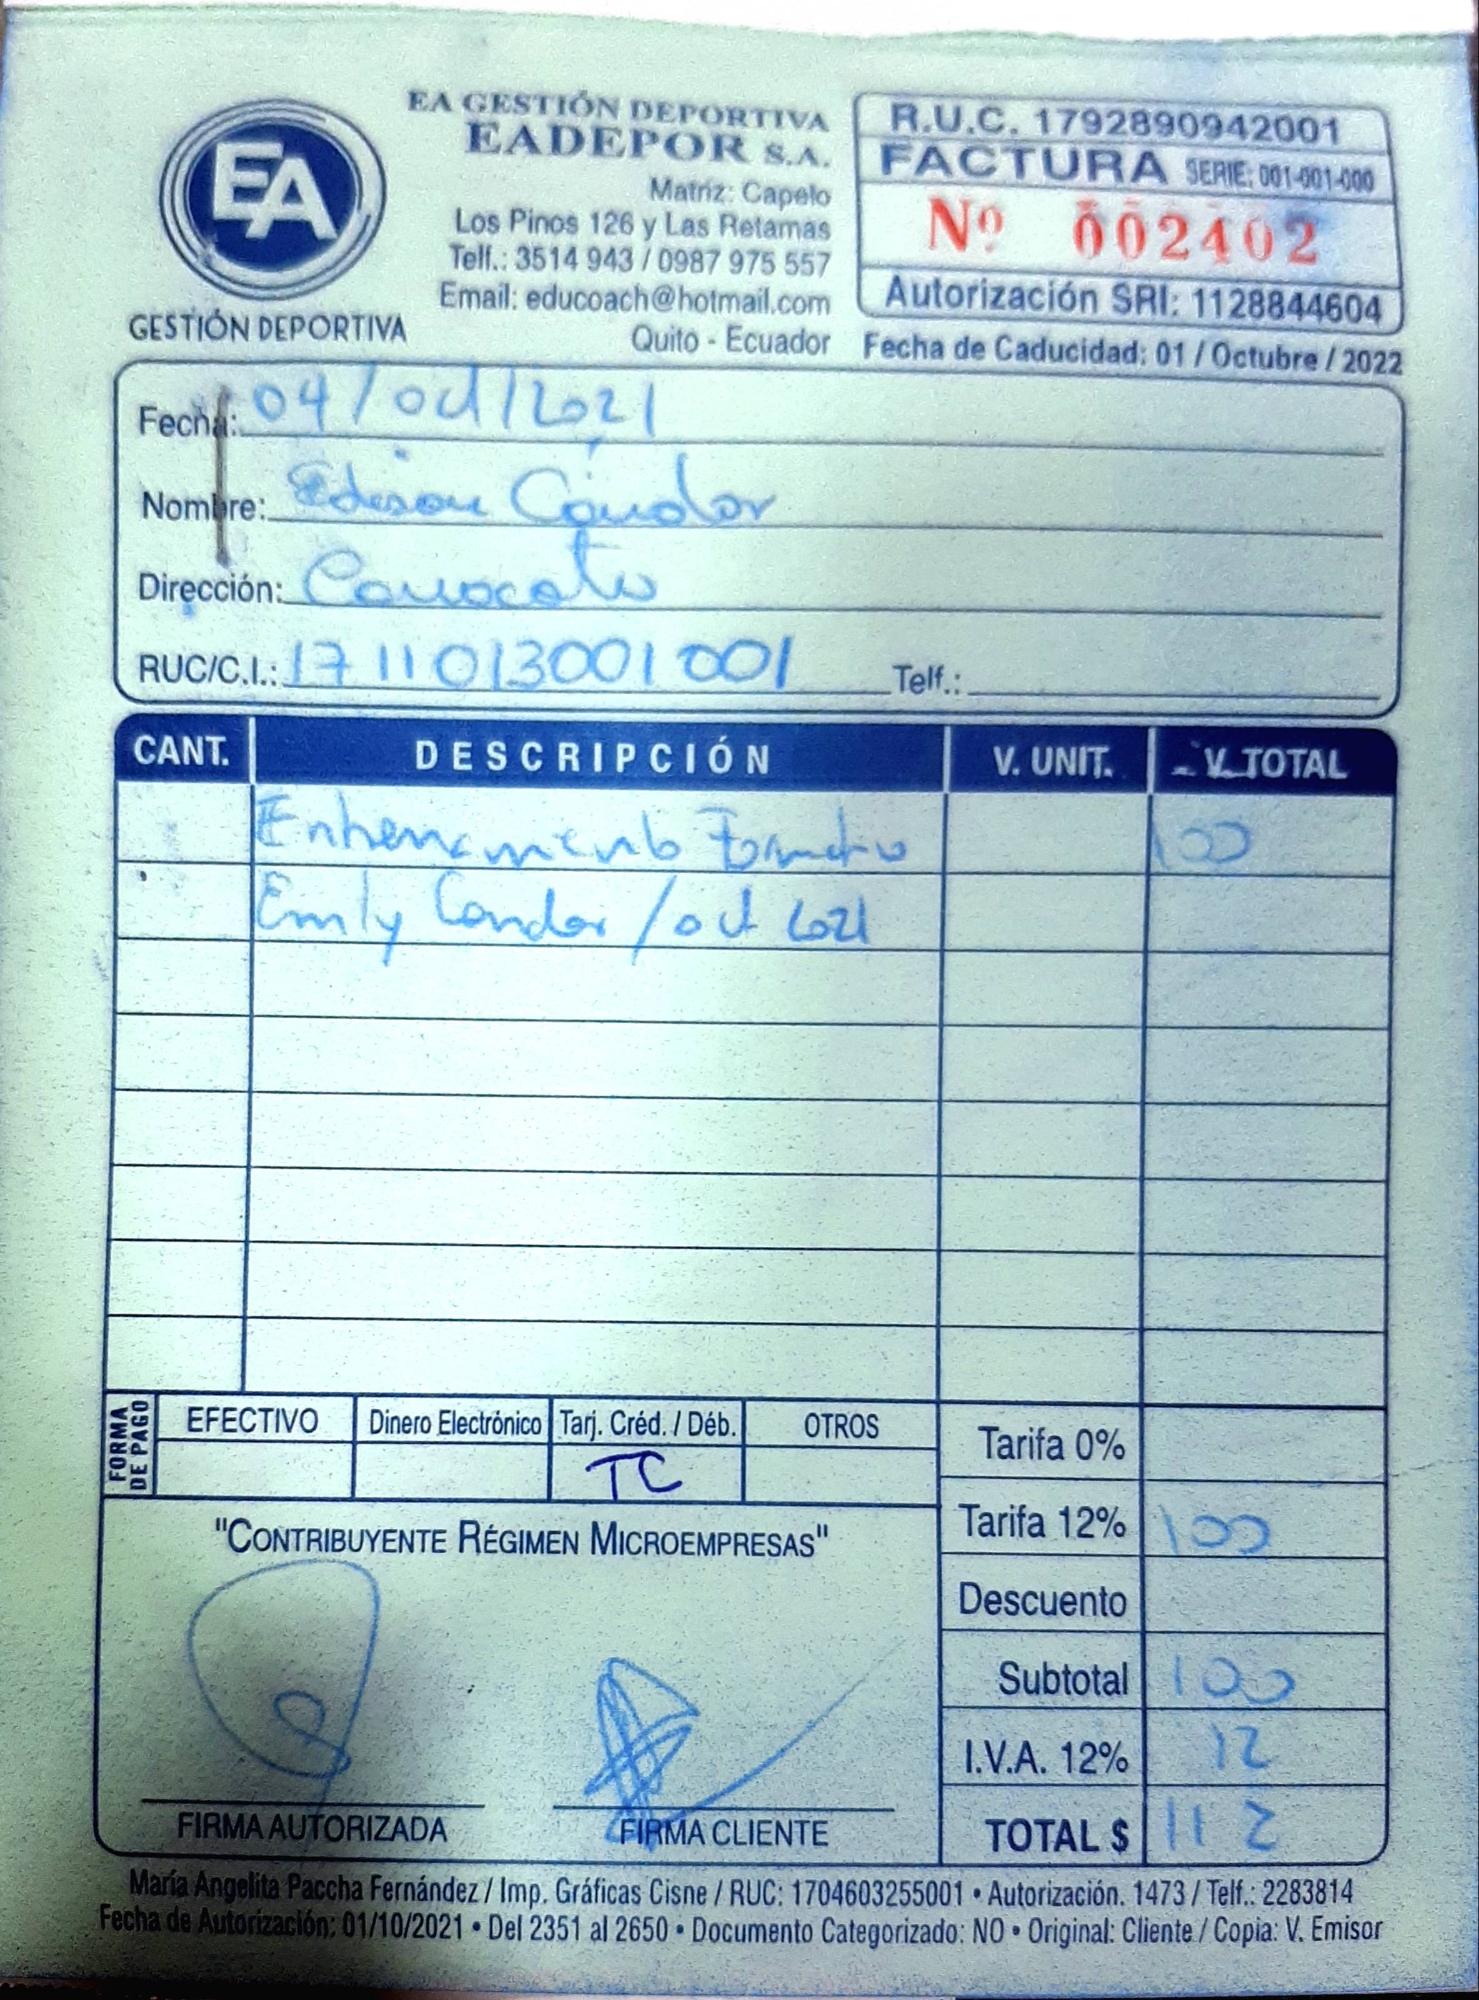 EA GESTIÓN DEPORTIVA
EADEPOR S.A.
Matriz: Capelo
Los Pinos 126 y Las Retamas
Telf.: 3514 943 / 0987 975 557
Email: educoach@hotmail.com
Quito - Ecuador
EA
GESTIÓN DEPORTIVA
R.U.C. 1792890942001
FACTURA SERIE: 001-001-000
Nº 002402
Autorización SRI: 1128844604
Fecha de Caducidad: 01 / Octubre / 2022
Fecha: 04/oct/2021
Nombre: Edison Cóndor
Dirección: Conocoto
RUC/C.I.: 1711013001001 Telf.:
CANT. DESCRIPCIÓN V. UNIT. V. TOTAL
Entrenamiento Formativo 100
Emily Condor /oct 2021
FORMA DE PAGO
EFECTIVO Dinero Electrónico Tarj. Créd. / Déb. OTROS
TC
Tarifa 0%
Tarifa 12% 100
Descuento
Subtotal 100
I.V.A. 12% 12
TOTAL $ 112
"CONTRIBUYENTE RÉGIMEN MICROEMPRESAS"
FIRMA AUTORIZADA FIRMA CLIENTE
María Angelita Paccha Fernández / Imp. Gráficas Cisne / RUC: 1704603255001 • Autorización. 1473 / Telf.: 2283814
Fecha de Autorización: 01/10/2021 • Del 2351 al 2650 • Documento Categorizado: NO • Original: Cliente / Copia: V. Emisor